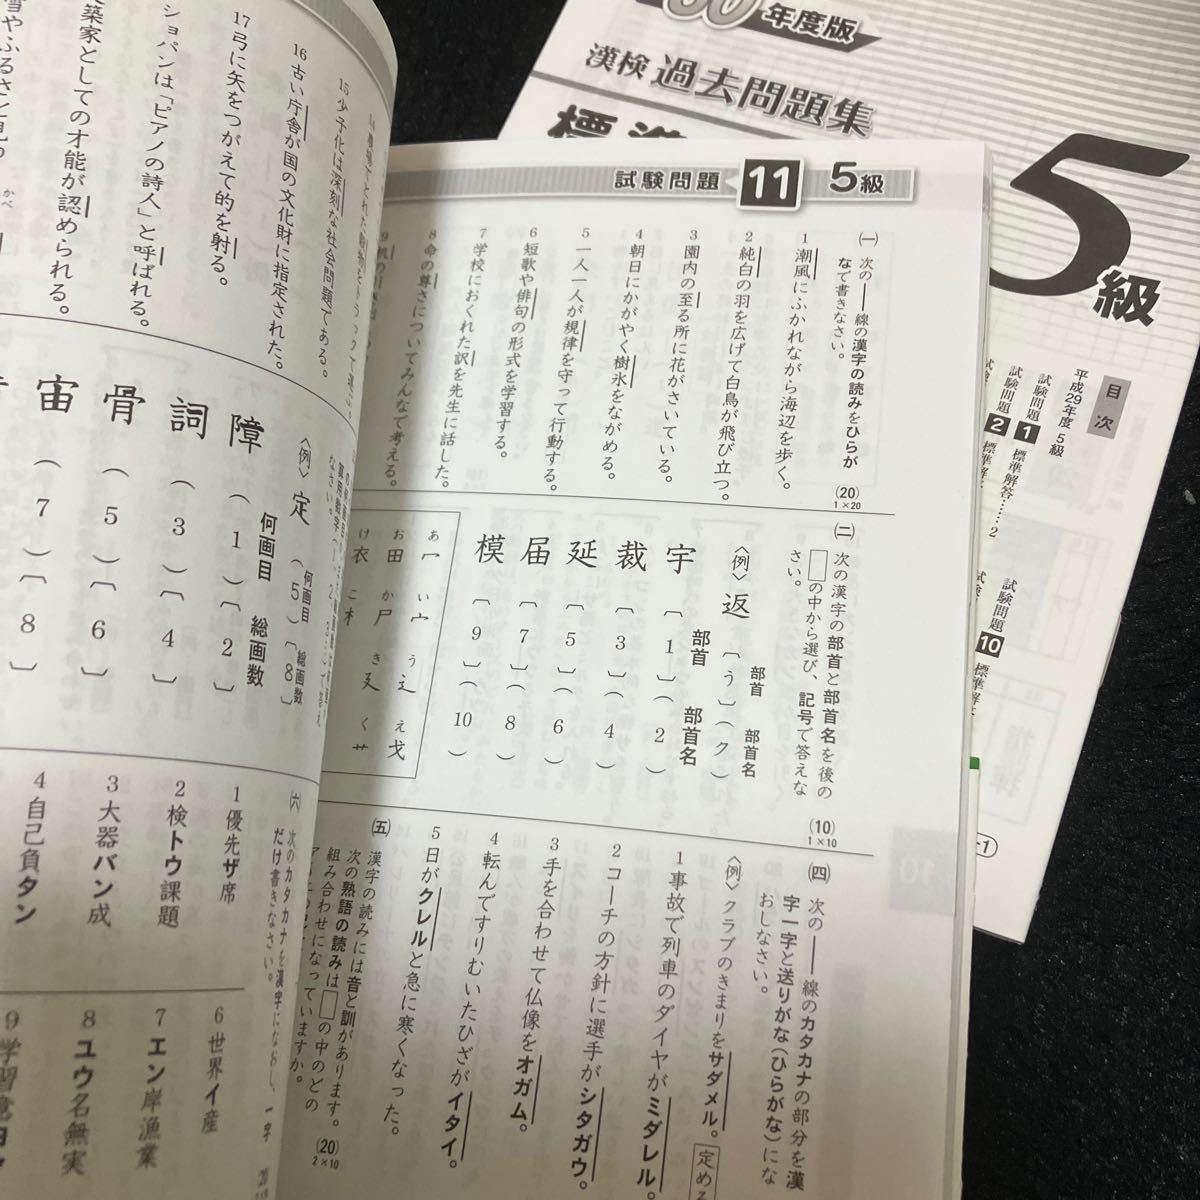 年度版
漢検 過去問題集
5
級
目次
平成29年度 5級
試験問題 1 標準解答……2
試験問題 2 標準
試験問題 10 標準
試験問題 11 5級
(一) 次の――線の漢字の読みをひらがなで書きなさい。 (20) 1×20
1 潮風にふかれながら海辺を歩く。
2 純白の羽を広げて白鳥が飛び立つ。
3 園内の至る所に花がさいている。
4 朝日にかがやく樹氷をながめる。
5 一人一人が規律を守って行動する。
6 短歌や俳句の形式を学習する。
7 学校におくれた訳を先生に話した。
8 命の尊さについてみんなで考える。
(二) 次の漢字の部首と部首名を後の□の中から選び、記号で答えなさい。 (10) 1×10
〈例〉返 〔う〕(ク)
部首 部首名
部首 部首名
宇 〔1〕(2)
裁 〔3〕(4)
延 〔5〕(6)
届 〔7〕(8)
模 〔9〕(10)
あ 冖 い 宀 う 辶 え 戈
お 田 か 尸 き 廴 く 艹
け 衣 こ 木
(四) 次の――線のカタカナの部分を漢字一字と送りがな(ひらがな)になおしなさい。
〈例〉クラブのきまりをサダメル。 定める
1 事故で列車のダイヤがミダレル。
2 コーチの方針に選手がシタガウ。
3 手を合わせて仏像をオガム。
4 転んですりむいたひざがイタイ。
5 日がクレルと急に寒くなった。
(五) 漢字の読みには音と訓があります。次の熟語の読みは□の中のどの組み合わせになっていますか。 (20) 2×10
15 少子化は深刻な社会問題である。
16 古い庁舎が国の文化財に指定された。
17 弓に矢をつがえて的を射る。
ショパンは「ピアノの詩人」と呼ばれる。
築家としての才能が認められる。
〈例〉定 (5)〔8〕
何画目 総画数
何画目 総画数
障 (1)〔2〕
詞 (3)〔4〕
骨 (5)〔6〕
宙 (7)〔8〕
(六) 次のカタカナを漢字になおし、一字だけ書きなさい。
1 優先ザ席
2 検トウ課題
3 大器バン成
4 自己負タン
6 世界イ産
7 エン岸漁業
8 ユウ名無実
9 学習意ヨク